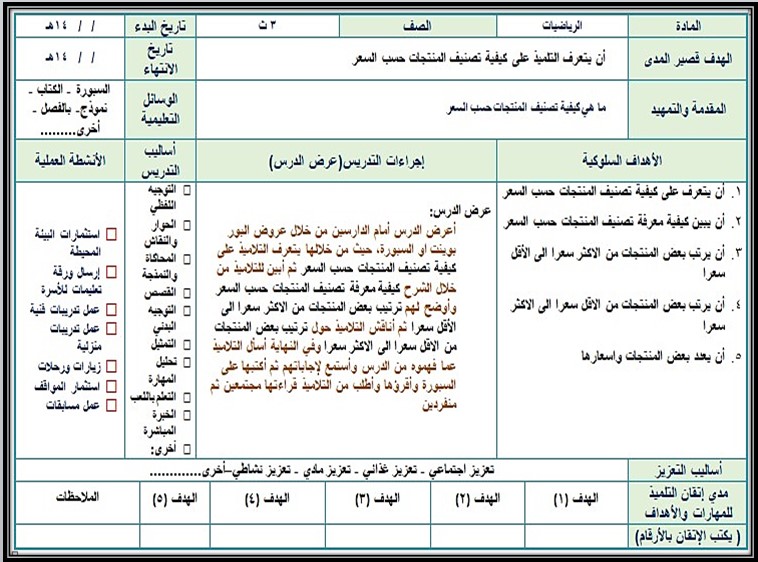 المادة الرياضيات الصف ٣ ث تاريخ البدء / / ١٤هـ
الهدف قصير المدى أن يتعرف التلميذ على كيفية تصنيف المنتجات حسب السعر تاريخ الانتهاء / / ١٤هـ
المقدمة والتمهيد ما هي كيفية تصنيف المنتجات حسب السعر الوسائل التعليمية
السبورة ـ الكتاب ـ
نموذج- بالفصل ـ
أخرى.........
الأهداف السلوكية إجراءات التدريس(عرض الدرس) أساليب التدريس الأنشطة العملية
١. أن يتعرف على كيفية تصنيف المنتجات حسب السعر
٢. أن يبين كيفية معرفة تصنيف المنتجات حسب السعر
٣. أن يرتب بعض المنتجات من الاكثر سعرا الى الأقل
سعرا
٤. أن يرتب بعض المنتجات من الأقل سعرا الى الاكثر
سعرا
٥. أن يعدد بعض المنتجات واسعارها
عرض الدرس:
أعرض الدرس أمام الدارسين من خلال عروض البور
بوينت او السبورة، حيث من خلالها يتعرف التلاميذ على
كيفية تصنيف المنتجات حسب السعر ثم أبين للتلاميذ من
خلال الشرح كيفية معرفة تصنيف المنتجات حسب السعر
وأوضح لهم ترتيب بعض المنتجات من الاكثر سعرا الى
الأقل سعرا ثم أناقش التلاميذ حول ترتيب بعض المنتجات
من الاقل سعرا الى الاكثر سعرا وفي النهاية أسأل التلاميذ
عما فهموه من الدرس وأستمع لإجاباتهم ثم أكتبها على
السبورة وأقرؤها وأطلب من التلاميذ قراءتها مجتمعين ثم
منفردين
التوجيه
اللفظي
الحوار
والنقاش
المحاكاة
والنمذجة
القصص
التوجيه
البدني
التمثيل
تحليل
المهارة
التعلم باللعب
الخبرة
المباشرة
أخرى:
استثمارات البيئة
المحيطة
إرسال ورقة
تعليمات للأسرة
عمل تدريبات فنية
عمل تدريبات
منزلية
زيارات ورحلات
استثمار المواقف
عمل مسابقات
أساليب التعزيز تعزيز اجتماعي ـ تعزيز غذائي ـ تعزيز مادي ـ تعزيز نشاطي–أخرى.............
مدي إتقان التلميذ
للمهارات والأهداف
الهدف (١) الهدف (٢) الهدف (٣) الهدف (٤) الهدف (٥) الملاحظات
( يكتب الإتقان بالأرقام)